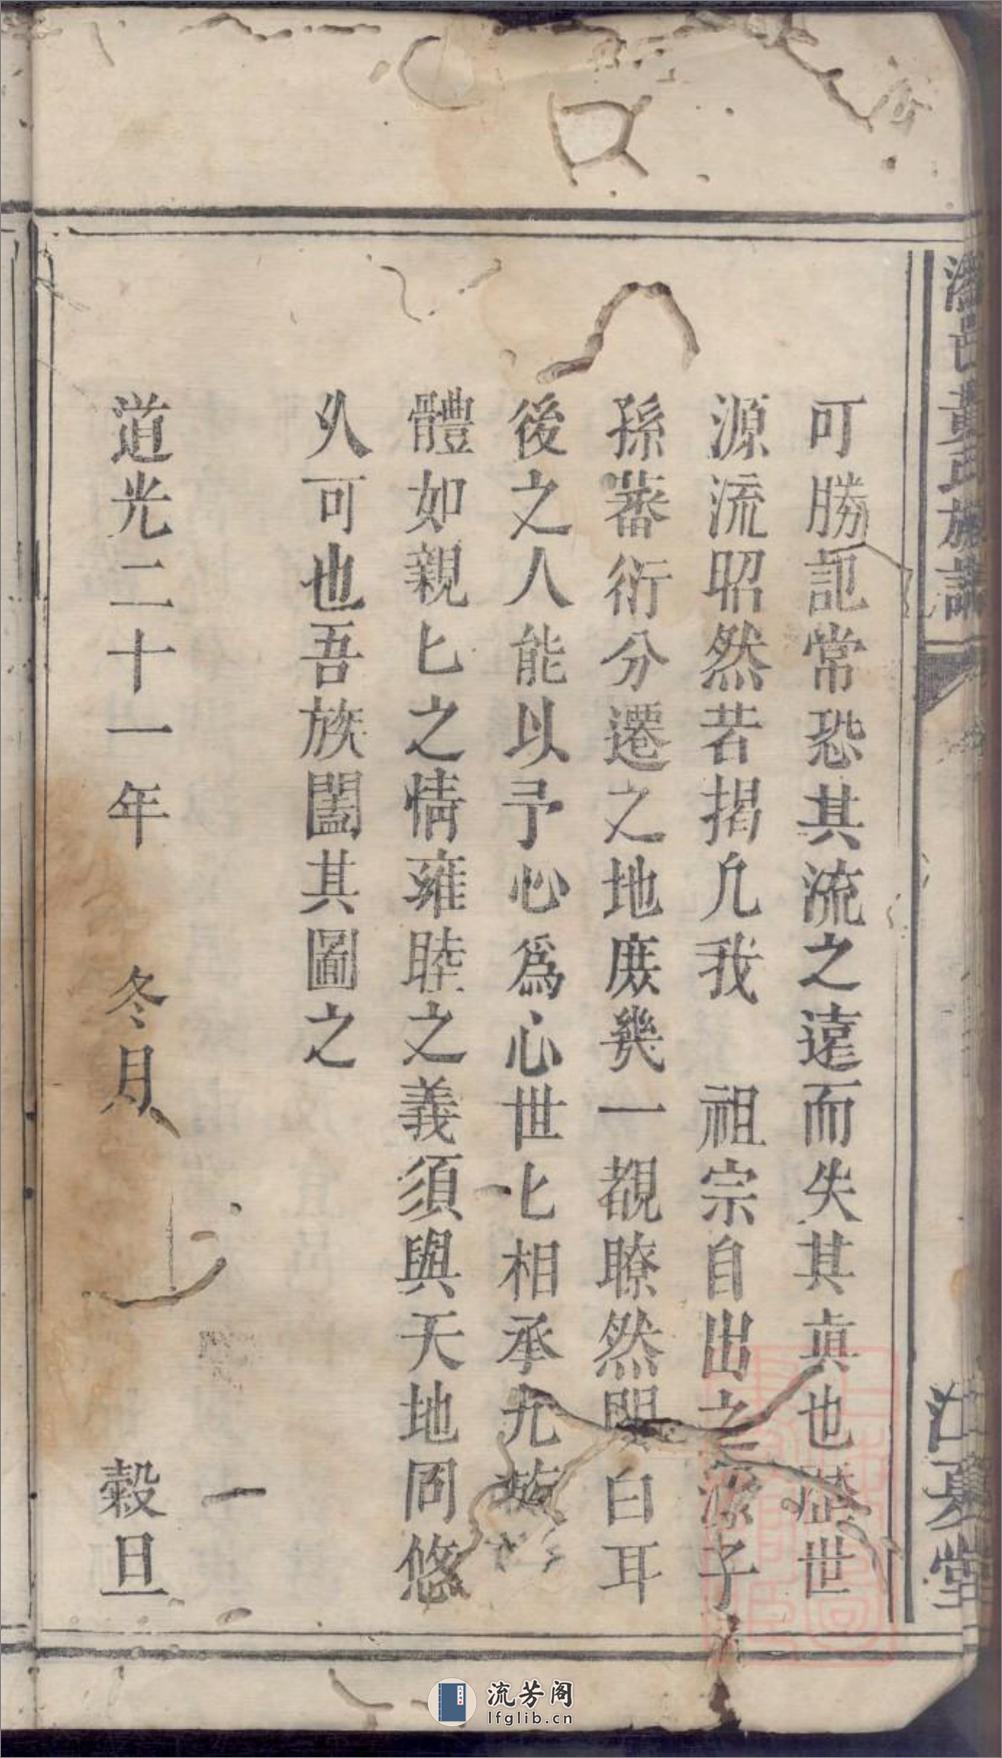 黃氏族譜
江夏堂
可勝記常恐其流之遠而失其真也歷世
源流昭然若揭凢我 祖宗自出之源子
孫蕃衍分遷之地庻幾一覩瞭然明白耳
後之人能以予心爲心世匕相承九族
體如親匕之情雍睦之義須與天地同悠
久可也吾族闔其圖之
道光二十一年 冬月 穀旦
一
流芳阁
lfglib.cn